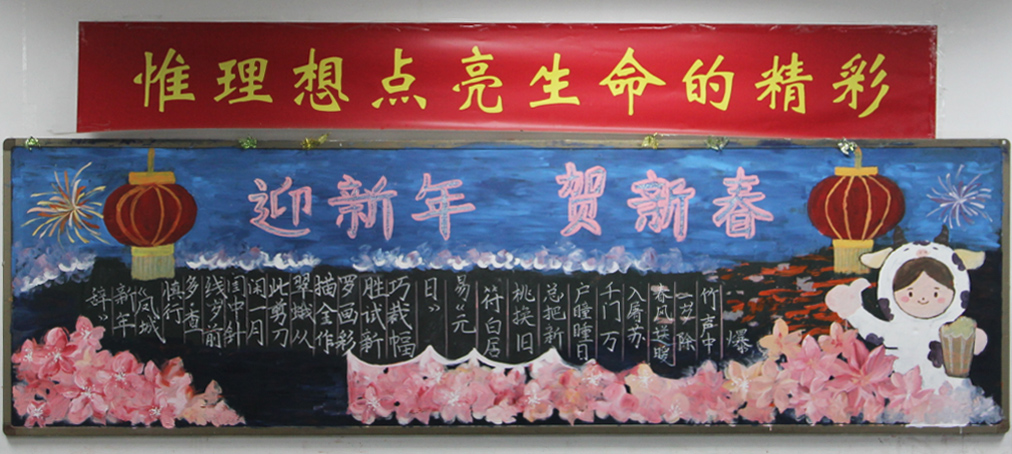 惟理想点亮生命的精彩
迎新年 贺新春
爆
竹声中
一岁除
春风送暖
入屠苏
千门万
户瞳瞳日
总把新
桃换旧
符白居
易《元
日》
巧裁幅
胜试新
罗画彩
描金作
翠蛾从
此剪刀
闲一月
闺中针
线岁前
多查
慎行
《凤城
新年
辞》